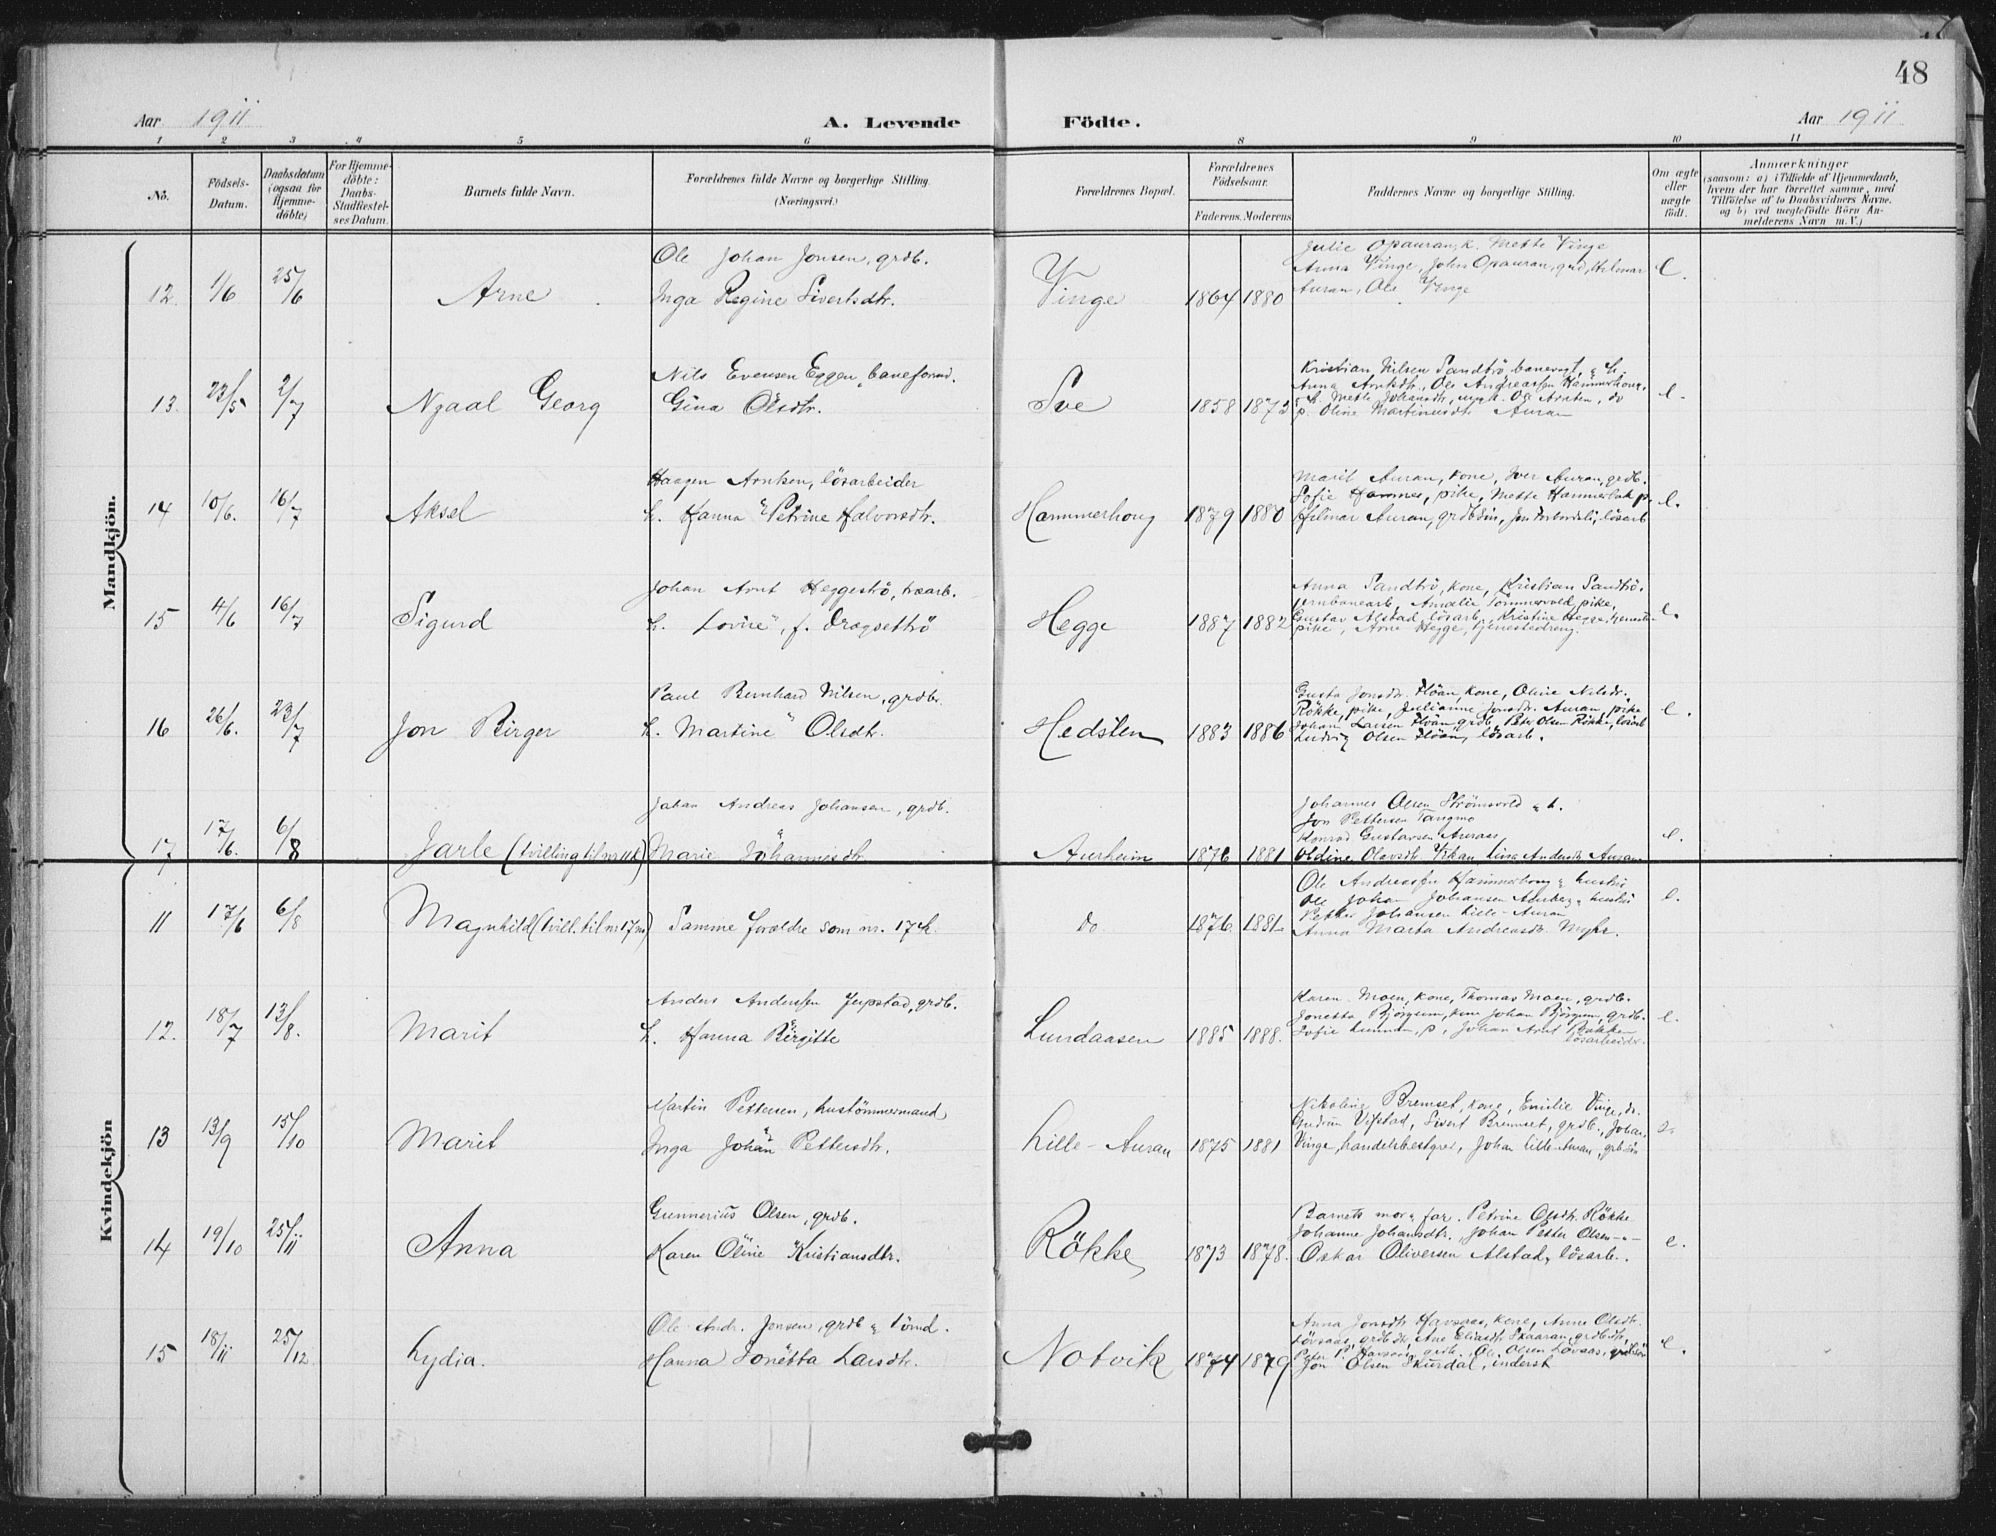 48
Aar 1911 A. Levende Födte. Aar 1911
1 2 3 4 5 6 8 9 10 11
No.
Födsels-Datum.
Daabsdatum (ogsaa for Hjemme-döbte)
For Hjemme-döbte: Daabs-Stadfæstel-ses Datum.
Barnets fulde Navn.
Forældrenes fulde Navne og borgerlige Stilling. (Næringsvei.)
Forældrenes Bopæl.
Forældrenes Födselsaar.
Faderens. Moderens
Faddernes Navne og borgerlige Stilling.
Om ægte eller uægte födt.
Anmærkninger
(saasom: a) i Tilfælde af Hjemmedaab,
hvem der har forrettet samme, med
Tilföielse af to Daabsvidners Navne.
og b) ved uægtefödte Börn An-
melderens Navn m. V.)
Mandkjön.
Ole Johan Jonsen, grdb. Julie Opauran, k. Mette Vinge
12. 1/6 25/6 Arne Inga Regine Sivertsdtr. Vinge 1864 1880 Anna Vinge, John Opauran, grd, Hilmar e.
Auran, Ole Vinge
Nils Evensen Eggen, baneform. Kristian Nilsen Sandtrö banevogt, & h.
13. 23/5 2/7 Ngaal Georg Gina Olsdtr. Sve 1858 1873 Anna Arntsdtr., Ole Andreassen Hammerhoug. e.
h. Mette Johansdtr, Ole Arntsen, do
p. Oline Martinusdtr Auran
Haagen Arntsen, lösarbeider Marit Auran, kone, Iver Auran, grdb.
14 10/6. 16/7 Aksel h. Hanna Petrine Halvorsdtr. Hammerhoug 1879 1880 Sofie Hammer, pike, Mette p. e.
Hilmar Auran, grdb.sön, Jon lösarb
Johan Arnt Heggeströ, træarb. Anna Sandtrö, kone, Kristian Sandtrö,
15 4/6 16/7 Sigurd h. Lovise, f. Dragsettrö Hegge 1887 1882 jernbanearb, Amalie Tömmervold, pike, e.
Gustav Alstad, lösarb., Kristine Hegge, tjeneste-
pike, Arne Hegge, tjenestedreng.
Paul Bernhard Nilsen, grdb. Gusta Jonsdtr. Höan, kone, Oline Nilsdtr.
16 26/6. 23/7 Jon Birger h. Martine Olsdtr. Hedsten 1883 1886 Rökke, pike, Julianne Jonsdtr. Auran, pike e.
Johan Larsen Höan, grdb, Peter Olsen Rökke, lösarb
Ludvig Olsen Höan, lösarb.
Johan Andreas Johansen, grdb. Johannes Olsen Strömsvold & h.
Jon Pettersen Tangmo
Konrad Gustavsen Auraas
17 17/6. 6/8 Jarle (tvilling til nr 11 k) Marie Johannisdtr Aurheim 1876 1881 Oldine Olavsdtr Lina Andersdtr Auran e.
Kvindekjön
Ole Andreassen Hammerhoug & hustru
11 17/6 6/8 Magnhild (tvill. til nr 17 m) Samme forældre som nr. 17 do 1876 1881 Ole Johan Johansen & hustru e.
Petter Johansen Lille-Auran
Anna Marta Andreasdtr. Myhr.
Anders Anderssen Jerpstad, grdb. Karen Moen, kone, Thomas Moen, grdb.
12. 18/7 13/8. Marit h. Hanna Birgitte Lundaasen 1885 1888. Jonetta Björgum, kone Johan Björgum, grdb. e.
Sofie p, Johan Arnt Rökke
lösarbeider
Martin Pettersen, hustömmermand Nikoline Bremset, kone, Emilie Vinge, do.
13 13/9 15/10 Marit Inga Johan Pettersdtr. Lille-Auran 1875 1881 Gudrun Vifstad, Sivert Bremset, grdb., Johan e.
Vinge, handelsbestyrer, Johan Lille-Auran, grdb.sön
Gunnerius Olsen, grdb. Barnets mor & far. Petrine Olsdtr. Rökke
14 19/10 25/11 Anna Karen Oline Kristiansdtr. Rökke 1873 1878. Johanne Johansdtr., Johan Peter Olsen -"- e.
Oskar Oliversen Alstad, lösarb.
Ole Andr. Jonsen, grdb & tömd. Anna Jonsdtr Havsaas, kone, Anne Olsdtr.
15 18/11 25/12 Lydia. Hanna Jonetta Larsdtr. Notvik 1874 1879 Lövsaas, grdb.dtr, Ane Eliasdtr Skaaran, grdb.dtr, e.
Peter P. Havsaas, grdb., Ole Olsen Lövsaas, grdb.sön
Jon Olsen Skurdal, inderst